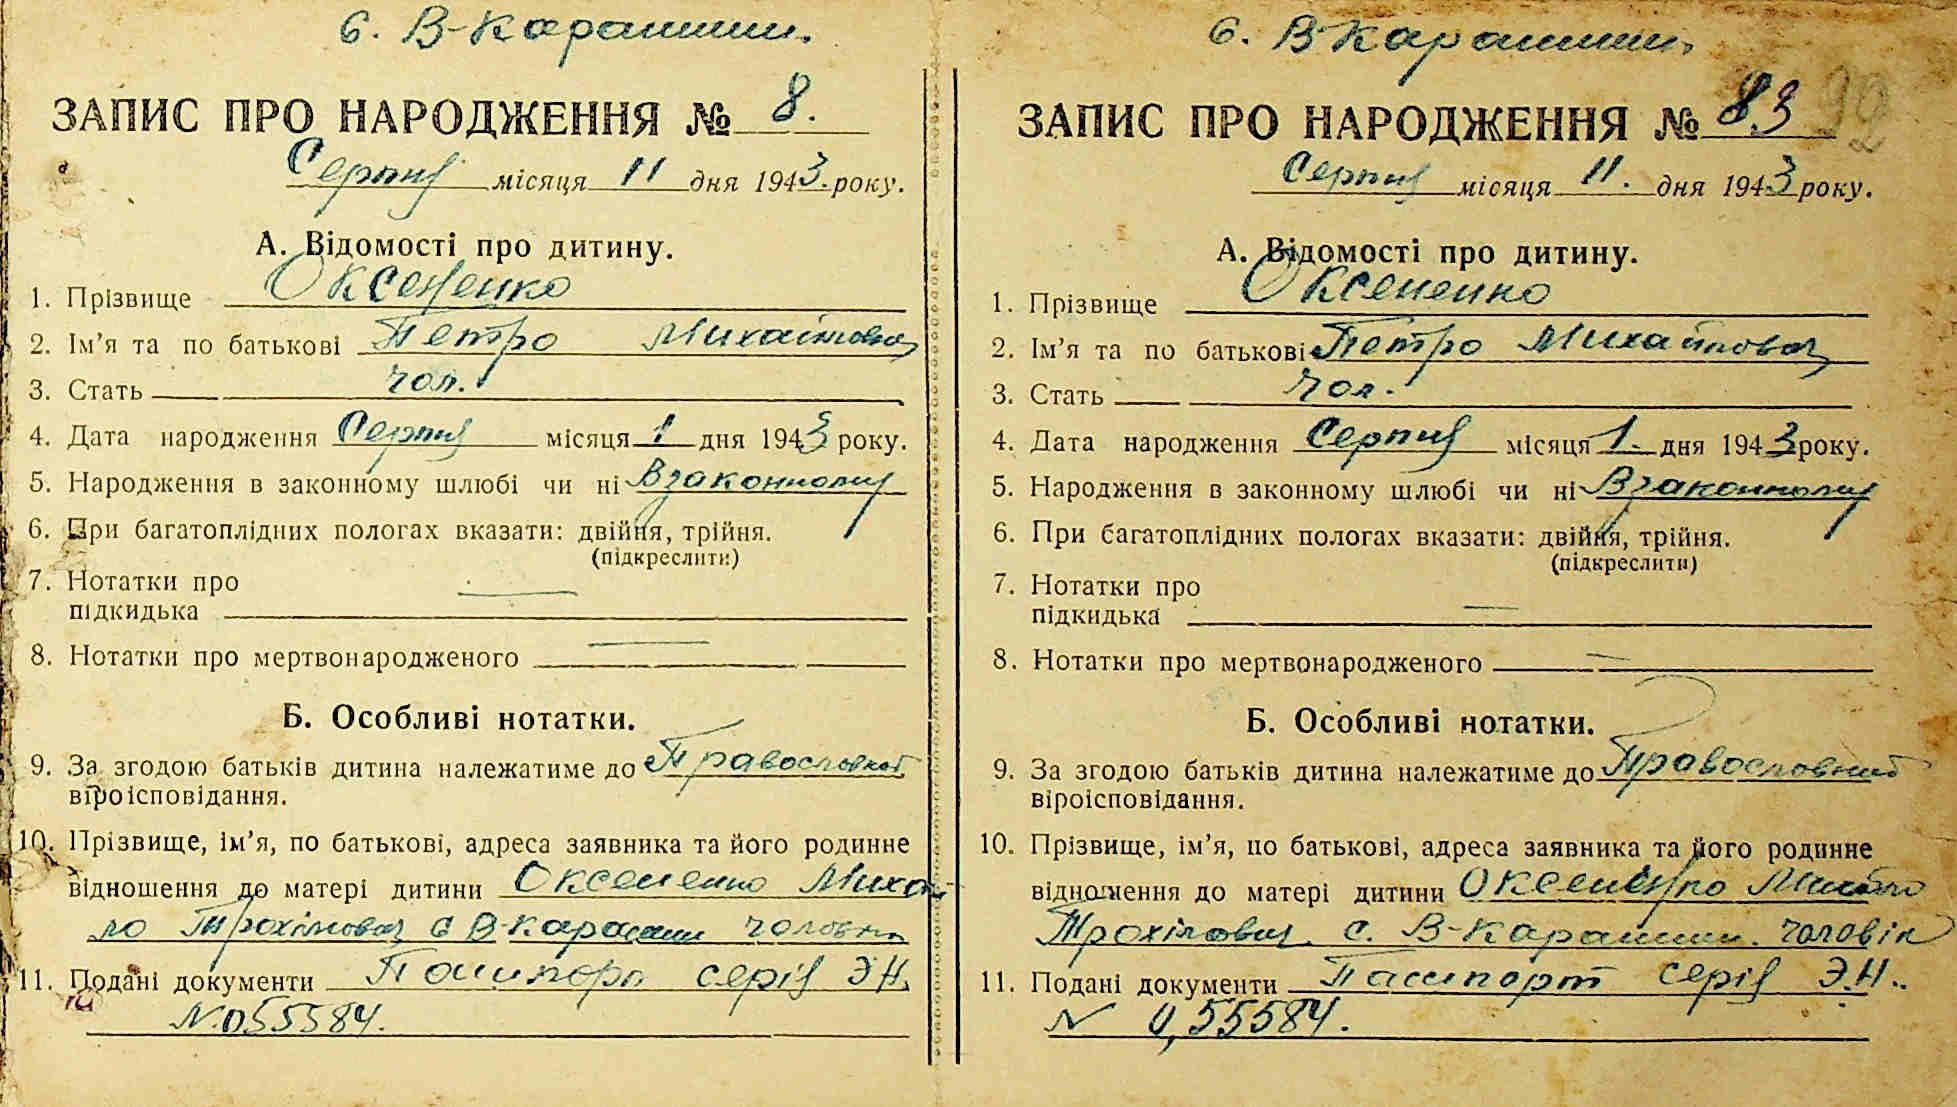 с. В-Карашин.
ЗАПИС ПРО НАРОДЖЕННЯ № 8.
Серпня місяця 11 дня 1943. року.
А. Відомості про дитину.
1. Прізвище Оксененко
2. Ім’я та по батькові Петро Михайлович
3. Стать чол.
4. Дата народження Серпня місяця 1 дня 1943 року.
5. Народження в законному шлюбі чи ні В законному
6. При багатоплідних пологах вказати: двійня, трійня.
(підкреслити)
7. Нотатки про —
підкидька
8. Нотатки про мертвонародженого —
Б. Особливі нотатки.
9. За згодою батьків дитина належатиме до Православної
віроісповідання.
10. Прізвище, ім’я, по батькові, адреса заявника та його родинне
відношення до матері дитини Оксененко Михай
ло Трохимович с В-Карашин чоловік
11. Подані документи Пашпорт серія ЭН.
N.055584.
с. В-Карашин.
ЗАПИС ПРО НАРОДЖЕННЯ № 83 92
Серпня місяця 11. дня 1943 року.
А. Відомості про дитину.
1. Прізвище Оксененко
2. Ім’я та по батькові Петро Михайлович
3. Стать чол.
4. Дата народження Серпня місяця 1. дня 1943 року.
5. Народження в законному шлюбі чи ні В законному
6. При багатоплідних пологах вказати: двійня, трійня.
(підкреслити)
7. Нотатки про —
підкидька
8. Нотатки про мертвонародженого —
Б. Особливі нотатки.
9. За згодою батьків дитина належатиме до Православної
віроісповідання.
10. Прізвище, ім’я, по батькові, адреса заявника та його родинне
відношення до матері дитини Оксененко Михайло
Трохимович. с. В-Карашин. чоловік
11. Подані документи Пашпорт серія Э.Н..
N 055584.